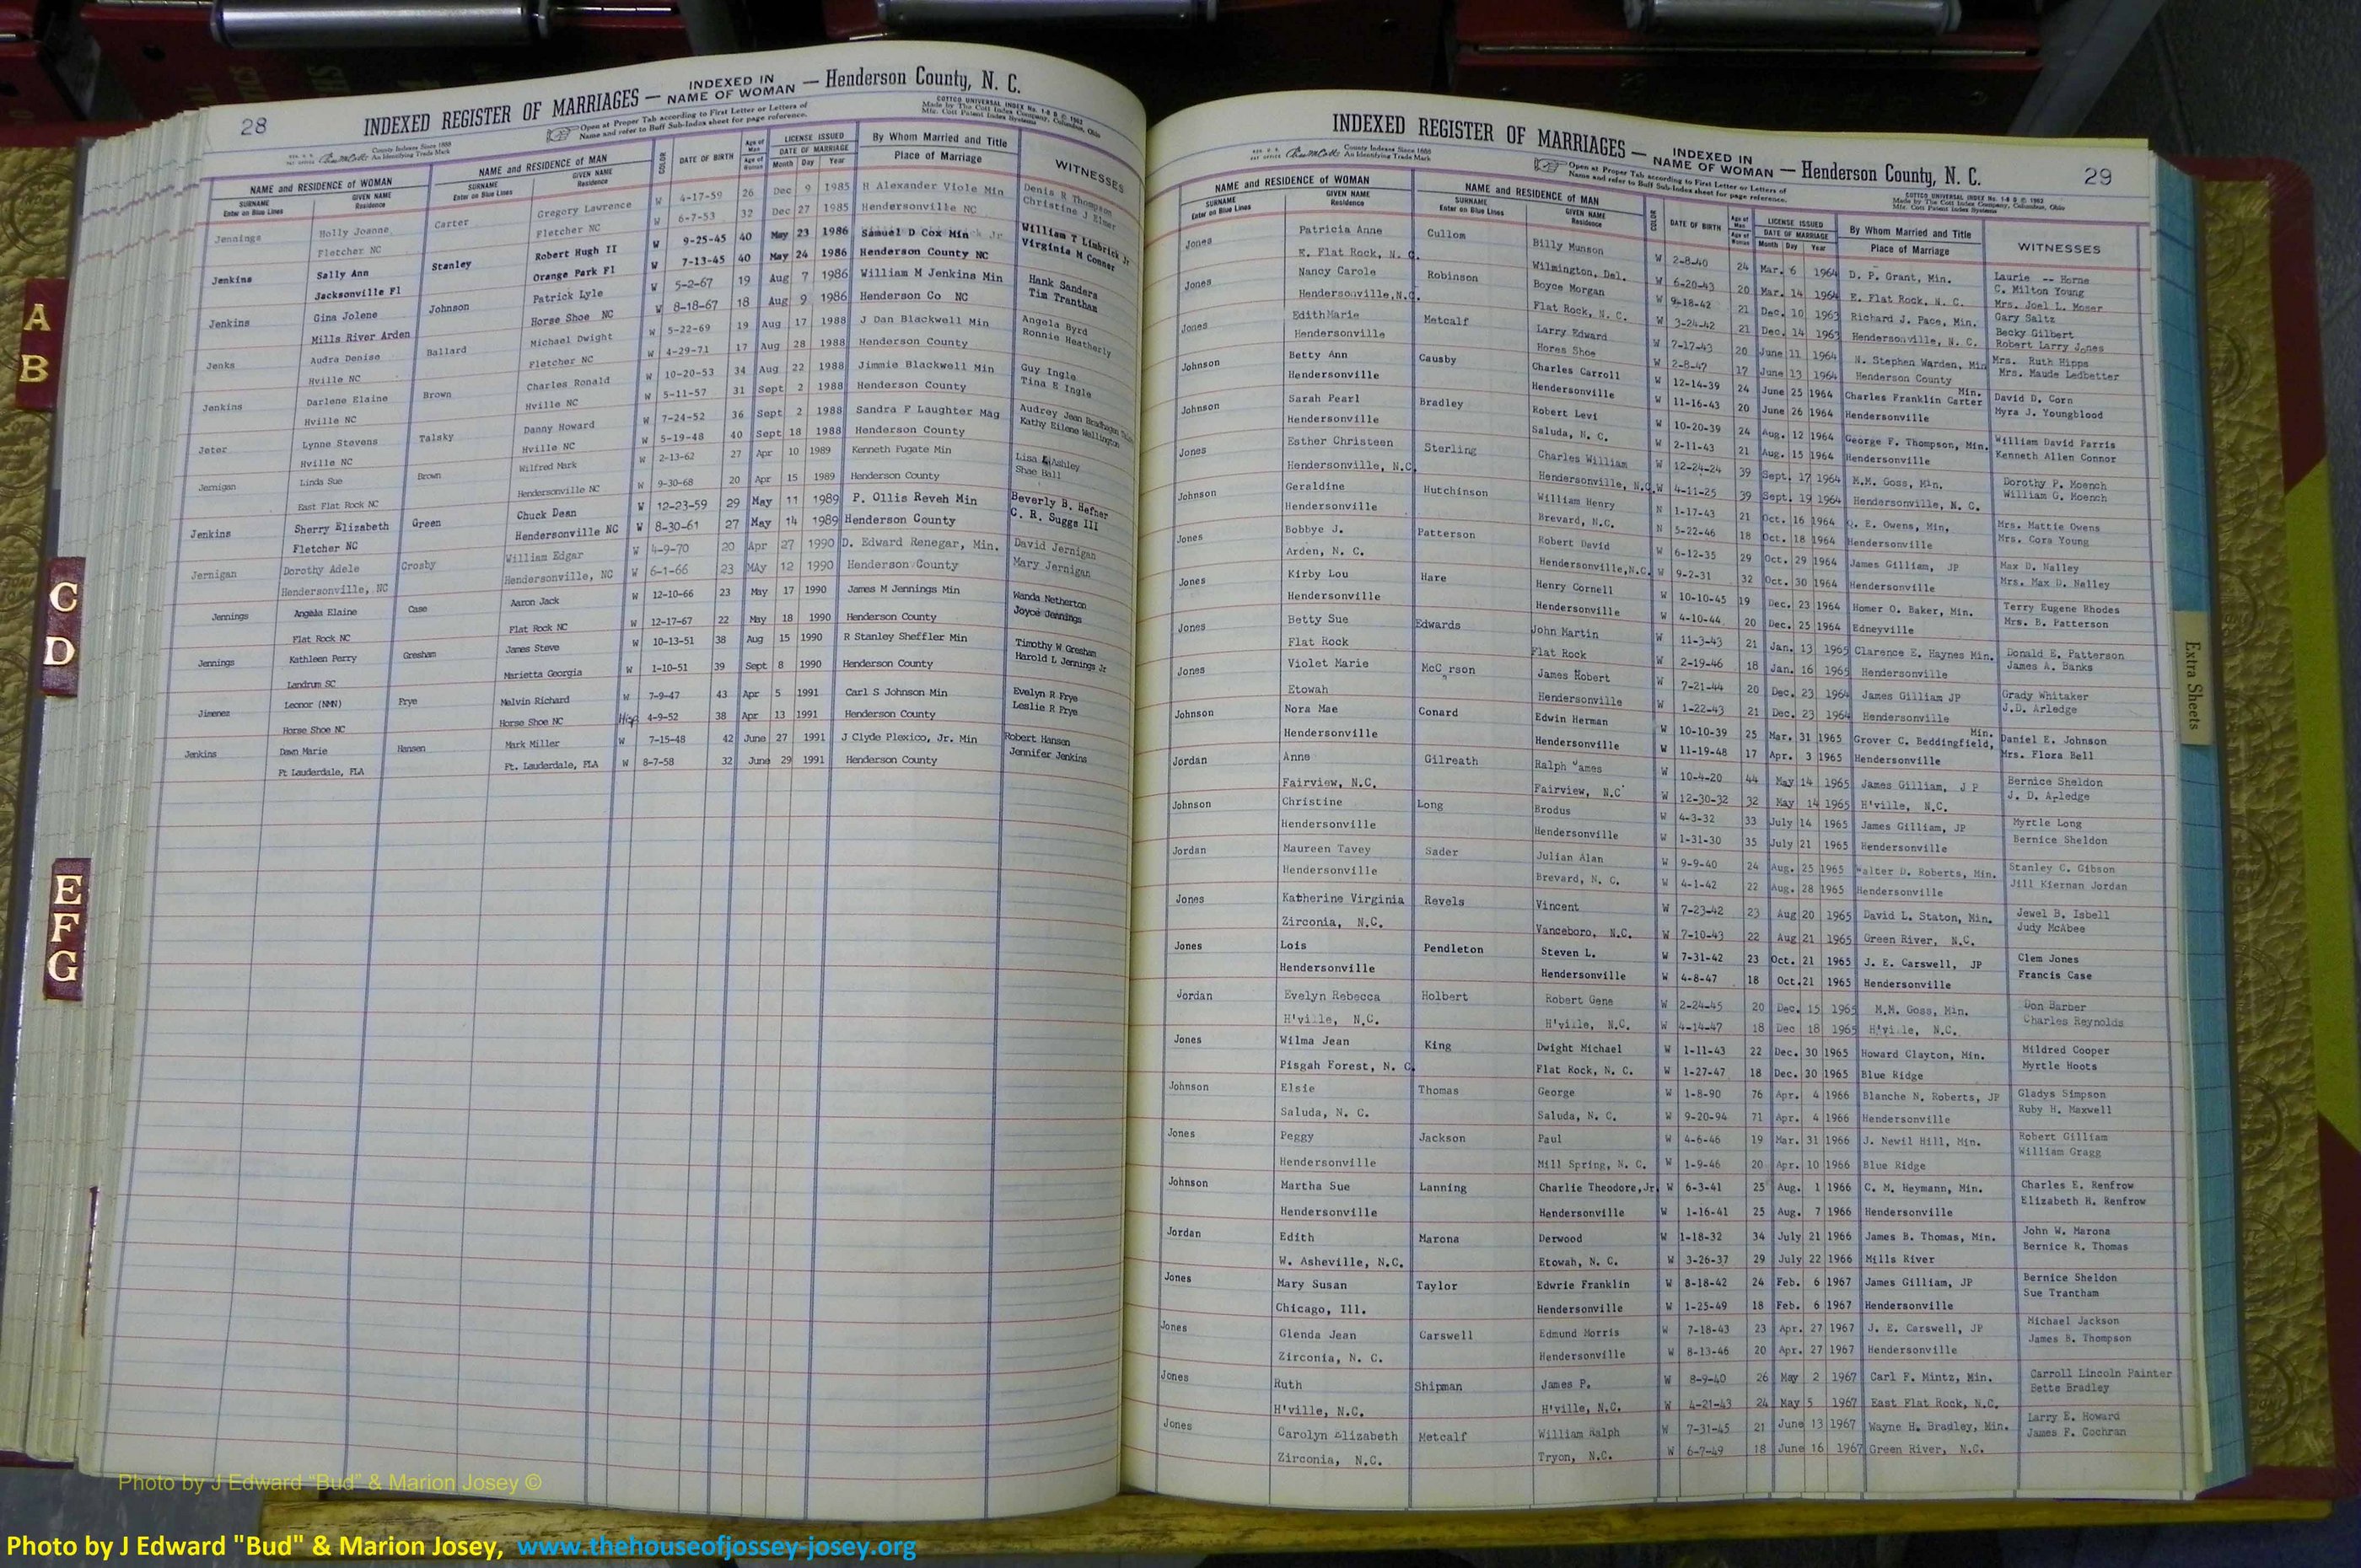 28
INDEXED REGISTER OF MARRIAGES — INDEXED IN NAME OF WOMAN — Henderson County, N. C.
County Indexes Since 1888
An Identifying Trade Mark
Open at Proper Tab according to First Letter or Letters of
Name and refer to Buff Sub-Index sheet for page reference.
COTTCO UNIVERSAL INDEX No. 1-8 B © 1963
Made by The Cott Index Company, Columbus, Ohio
Mfr. Cott Patent Index Systems
NAME and RESIDENCE of WOMAN NAME and RESIDENCE of MAN COLOR DATE OF BIRTH Age of Man LICENSE ISSUED By Whom Married and Title WITNESSES
SURNAME Enter on Blue Lines GIVEN NAME Residence SURNAME Enter on Blue Lines GIVEN NAME Residence Age of Woman DATE OF MARRIAGE Month Day Year Place of Marriage
Jennings Holly Joanne Carter Gregory Lawrence W 4-17-59 26 Dec 9 1985 H Alexander Viole Min Denis R Thompson
Fletcher NC Fletcher NC W 6-7-53 32 Dec 27 1985 Hendersonville NC Christine J Elmer
Jenkins Sally Ann Stanley Robert Hugh II W 9-25-45 40 May 23 1986 Samuel D Cox Min William T Limbrick Jr
Jacksonville Fl Orange Park Fl W 7-13-45 40 May 24 1986 Henderson County NC Virginia M Conner
Jenkins Gina Jolene Johnson Patrick Lyle W 5-2-67 19 Aug 7 1986 William M Jenkins Min Hank Sanders
Mills River Arden Horse Shoe NC W 8-18-67 18 Aug 9 1986 Henderson Co NC Tim Trantham
Jenks Audra Denise Ballard Michael Dwight W 5-22-69 19 Aug 17 1988 J Dan Blackwell Min Angela Byrd
Hville NC Fletcher NC W 4-29-71 17 Aug 28 1988 Henderson County Ronnie Heatherly
Jenkins Darlene Elaine Brown Charles Ronald W 10-20-53 34 Aug 22 1988 Jimmie Blackwell Min Guy Ingle
Hville NC Hville NC W 5-11-57 31 Sept 2 1988 Henderson County Tina E Ingle
Jeter Lynne Stevens Talsky Danny Howard W 7-24-52 36 Sept 2 1988 Sandra F Laughter Mag Audrey Jean
Hville NC Hville NC W 5-19-48 40 Sept 18 1988 Henderson County Kathy Eilene Wellington
Jernigan Linda Sue Brown Wilfred Mark W 2-13-62 27 Apr 10 1989 Kenneth Fugate Min Lisa Ashley
East Flat Rock NC Hendersonville NC W 9-30-68 20 Apr 15 1989 Henderson County Shae Ball
Jenkins Sherry Elizabeth Green Chuck Dean W 12-23-59 29 May 11 1989 P. Ollis Reveh Min Beverly B. Hefner
Fletcher NC Hendersonville NC W 8-30-61 27 May 14 1989 Henderson County C. R. Suggs III
Jernigan Dorothy Adele Crosby William Edgar W 4-9-70 20 Apr 27 1990 D. Edward Renegar, Min. David Jernigan
Hendersonville, NC Hendersonville, NC W 6-1-66 23 MAy 12 1990 Henderson County Mary Jernigan
Jennings Angela Elaine Case Aaron Jack W 12-10-66 23 May 17 1990 James M Jennings Min Wanda Netherton
Flat Rock NC Flat Rock NC W 12-17-67 22 May 18 1990 Henderson County Joyce Jennings
Jennings Kathleen Perry Gresham James Steve W 10-13-51 38 Aug 15 1990 R Stanley Sheffler Min Timothy W Gresham
Landrum SC Marietta Georgia W 1-10-51 39 Sept 8 1990 Henderson County Harold L Jennings Jr
Jimenez Leonor (NMN) Frye Melvin Richard W 7-9-47 43 Apr 5 1991 Carl S Johnson Min Evelyn R Frye
Horse Shoe NC Horse Shoe NC Hisp 4-9-52 38 Apr 13 1991 Henderson County Leslie R Frye
Jenkins Dawn Marie Hansen Mark Miller W 7-15-48 42 June 27 1991 J Clyde Plexico, Jr. Min Robert Hansen
Ft Lauderdale, FLA Ft. Lauderdale, FLA W 8-7-58 32 June 29 1991 Henderson County Jennifer Jenkins
INDEXED REGISTER OF MARRIAGES — INDEXED IN NAME OF WOMAN — Henderson County, N. C.
29
County Indexes Since 1888
An Identifying Trade Mark
Open at Proper Tab according to First Letter or Letters of
Name and refer to Buff Sub-Index sheet for page reference.
COTTCO UNIVERSAL INDEX No. 1-8 B © 1963
Made by The Cott Index Company, Columbus, Ohio
Mfr. Cott Patent Index Systems
NAME and RESIDENCE of WOMAN NAME and RESIDENCE of MAN COLOR DATE OF BIRTH Age of Man LICENSE ISSUED By Whom Married and Title WITNESSES
SURNAME Enter on Blue Lines GIVEN NAME Residence SURNAME Enter on Blue Lines GIVEN NAME Residence Age of Woman DATE OF MARRIAGE Month Day Year Place of Marriage
Jones Patricia Anne Cullom Billy Munson W 2-8-40 24 Mar. 6 1964 D. P. Grant, Min. Laurie -- Horne
E. Flat Rock, N. C. Wilmington, Del. W 6-20-43 20 Mar. 14 1964 E. Flat Rock, N. C. C. Milton Young
Jones Nancy Carole Robinson Boyce Morgan W 9-18-42 21 Dec. 10 1963 Richard J. Pace, Min. Mrs. Joel L. Moser
Hendersonville, N.C. Flat Rock, N. C. W 3-24-42 21 Dec. 14 1963 Hendersonville, N. C. Gary Saltz
Jones EdithMarie Metcalf Larry Edward W 7-17-43 20 June 11 1964 N. Stephen Warden, Min Becky Gilbert
Hendersonville Hores Shoe W 2-8-47 17 June 13 1964 Henderson County Robert Larry Jones
Johnson Betty Ann Causby Charles Carroll W 12-14-39 24 June 25 1964 Charles Franklin Carter Min. Mrs. Ruth Hipps
Hendersonville Hendersonville W 11-16-43 20 June 26 1964 Hendersonville Mrs. Maude Ledbetter
Johnson Sarah Pearl Bradley Robert Levi W 10-20-39 24 Aug. 12 1964 George F. Thompson, Min. David D. Corn
Hendersonville Saluda, N. C. W 2-11-43 21 Aug. 15 1964 Hendersonville Myra J. Youngblood
Jones Esther Christeen Sterling Charles William W 12-24-24 39 Sept. 17 1964 M.M. Goss, Min. William David Parris
Hendersonville, N.C. Hendersonville, N.C. W 4-11-25 39 Sept. 19 1964 Hendersonville, N. C. Kenneth Allen Connor
Johnson Geraldine Hutchinson William Henry N 1-17-43 21 Oct. 16 1964 Q. E. Owens, Min. Dorothy P. Moench
Hendersonville Brevard, N.C. N 5-22-46 18 Oct. 18 1964 Hendersonville William G. Moench
Jones Bobbye J. Patterson Robert David W 6-12-35 29 Oct. 29 1964 James Gilliam, JP Mrs. Mattie Owens
Arden, N. C. Hendersonville, N.C. W 9-2-31 32 Oct. 30 1964 Hendersonville Mrs. Cora Young
Jones Kirby Lou Hare Henry Cornell W 10-10-45 19 Dec. 23 1964 Homer O. Baker, Min. Max D. Nalley
Hendersonville Hendersonville W 4-10-44 20 Dec. 25 1964 Edneyville Mrs. Max D. Nalley
Jones Betty Sue Edwards John Martin W 11-3-43 21 Jan. 13 1965 Clarence E. Haynes Min. Terry Eugene Rhodes
Flat Rock Flat Rock W 2-19-46 18 Jan. 16 1965 Hendersonville Mrs. B. Patterson
Jones Violet Marie McC rson James Robert W 7-21-44 20 Dec. 23 1964 James Gilliam JP Donald E. Patterson
Etowah Hendersonville W 1-22-43 21 Dec. 23 1964 Hendersonville James A. Banks
Johnson Nora Mae Conard Edwin Herman W 10-10-39 25 Mar. 31 1965 Grover C. Beddingfield, Min. Grady Whitaker
Hendersonville Hendersonville W 11-19-48 17 Apr. 3 1965 Hendersonville J.D. Arledge
Jordan Anne Gilreath Ralph James W 10-4-20 44 May 14 1965 James Gilliam, J P Daniel E. Johnson
Fairview, N.C. Fairview, N.C W 12-30-32 32 May 14 1965 H'ville, N.C. Mrs. Flora Bell
Johnson Christine Long Brodus W 4-3-32 33 July 14 1965 James Gilliam, JP Bernice Sheldon
Hendersonville Hendersonville W 1-31-30 35 July 21 1965 Hendersonville J. D. Arledge
Jordan Maureen Tavey Sader Julian Alan W 9-9-40 24 Aug. 25 1965 Walter D. Roberts, Min. Myrtle Long
Hendersonville Brevard, N. C. W 4-1-42 22 Aug. 28 1965 Hendersonville Bernice Sheldon
Jones Katherine Virginia Revels Vincent W 7-23-42 23 Aug 20 1965 David L. Staton, Min. Stanley C. Gibson
Zirconia, N.C. Vanceboro, N.C. W 7-10-43 22 Aug 21 1965 Green River, N.C. Jill Kiernan Jordan
Jones Lois Pendleton Steven L. W 7-31-42 23 Oct. 21 1965 J. E. Carswell, JP Jewel B. Isbell
Hendersonville Hendersonville W 4-8-47 18 Oct. 21 1965 Hendersonville Judy McAbee
Jordan Evelyn Rebecca Holbert Robert Gene W 2-24-45 20 Dec. 15 1965 M.M. Goss, Min. Clem Jones
H'ville, N.C. H'ville, N.C. W 4-14-47 18 Dec 18 1965 H'ville, N.C. Francis Case
Jones Wilma Jean King Dwight Michael W 1-11-43 22 Dec. 30 1965 Howard Clayton, Min. Don Barber
Pisgah Forest, N. C. Flat Rock, N. C. W 1-27-47 18 Dec. 30 1965 Blue Ridge Charles Reynolds
Johnson Elsie Thomas George W 1-8-90 76 Apr. 4 1966 Blanche N. Roberts, JP Mildred Cooper
Saluda, N. C. Saluda, N. C. W 9-20-94 71 Apr. 4 1966 Hendersonville Myrtle Hoots
Jones Peggy Jackson Paul W 4-6-46 19 Mar. 31 1966 J. Newil Hill, Min. Gladys Simpson
Hendersonville Mill Spring, N. C. W 1-9-46 20 Apr. 10 1966 Blue Ridge Ruby H. Maxwell
Robert Gilliam
William Gragg
Johnson Martha Sue Lanning Charlie Theodore, Jr W 6-3-41 25 Aug. 1 1966 C. M. Heymann, Min. Charles E. Renfrow
Hendersonville Hendersonville W 1-16-41 25 Aug. 7 1966 Hendersonville Elizabeth H. Renfrow
Jordan Edith Marona Derwood W 1-18-32 34 July 21 1966 James B. Thomas, Min. John W. Marona
W. Asheville, N.C. Etowah, N. C. W 3-26-37 29 July 22 1966 Mills River Bernice R. Thomas
Jones Mary Susan Taylor Edwrie Franklin W 8-18-42 24 Feb. 6 1967 James Gilliam, JP Bernice Sheldon
Chicago, Ill. Hendersonville W 1-25-49 18 Feb. 6 1967 Hendersonville Sue Trantham
Jones Glenda Jean Carswell Edmund Morris W 7-18-43 23 Apr. 27 1967 J. E. Carswell, JP Michael Jackson
Zirconia, N. C. Hendersonville W 8-13-46 20 Apr. 27 1967 Hendersonville James B. Thompson
Jones Ruth Shipman James P. W 8-9-40 26 May 2 1967 Carl F. Mintz, Min. Carroll Lincoln Painter
H'ville, N.C. H'ville, N.C. W 4-21-43 24 May 5 1967 East Flat Rock, N.C. Bette Bradley
Jones Carolyn Elizabeth Metcalf William Ralph W 7-31-45 21 June 13 1967 Wayne H. Bradley, Min. Larry E. Howard
Zirconia, N.C. Tryon, N.C. W 6-7-49 18 June 16 1967 Green River, N.C. James F. Cochran
A
B
C
D
E
F
G
Extra Sheets
Photo by J Edward "Bud" & Marion Josey ©
Photo by J Edward "Bud" & Marion Josey, www.thehouseofjossey-josey.org